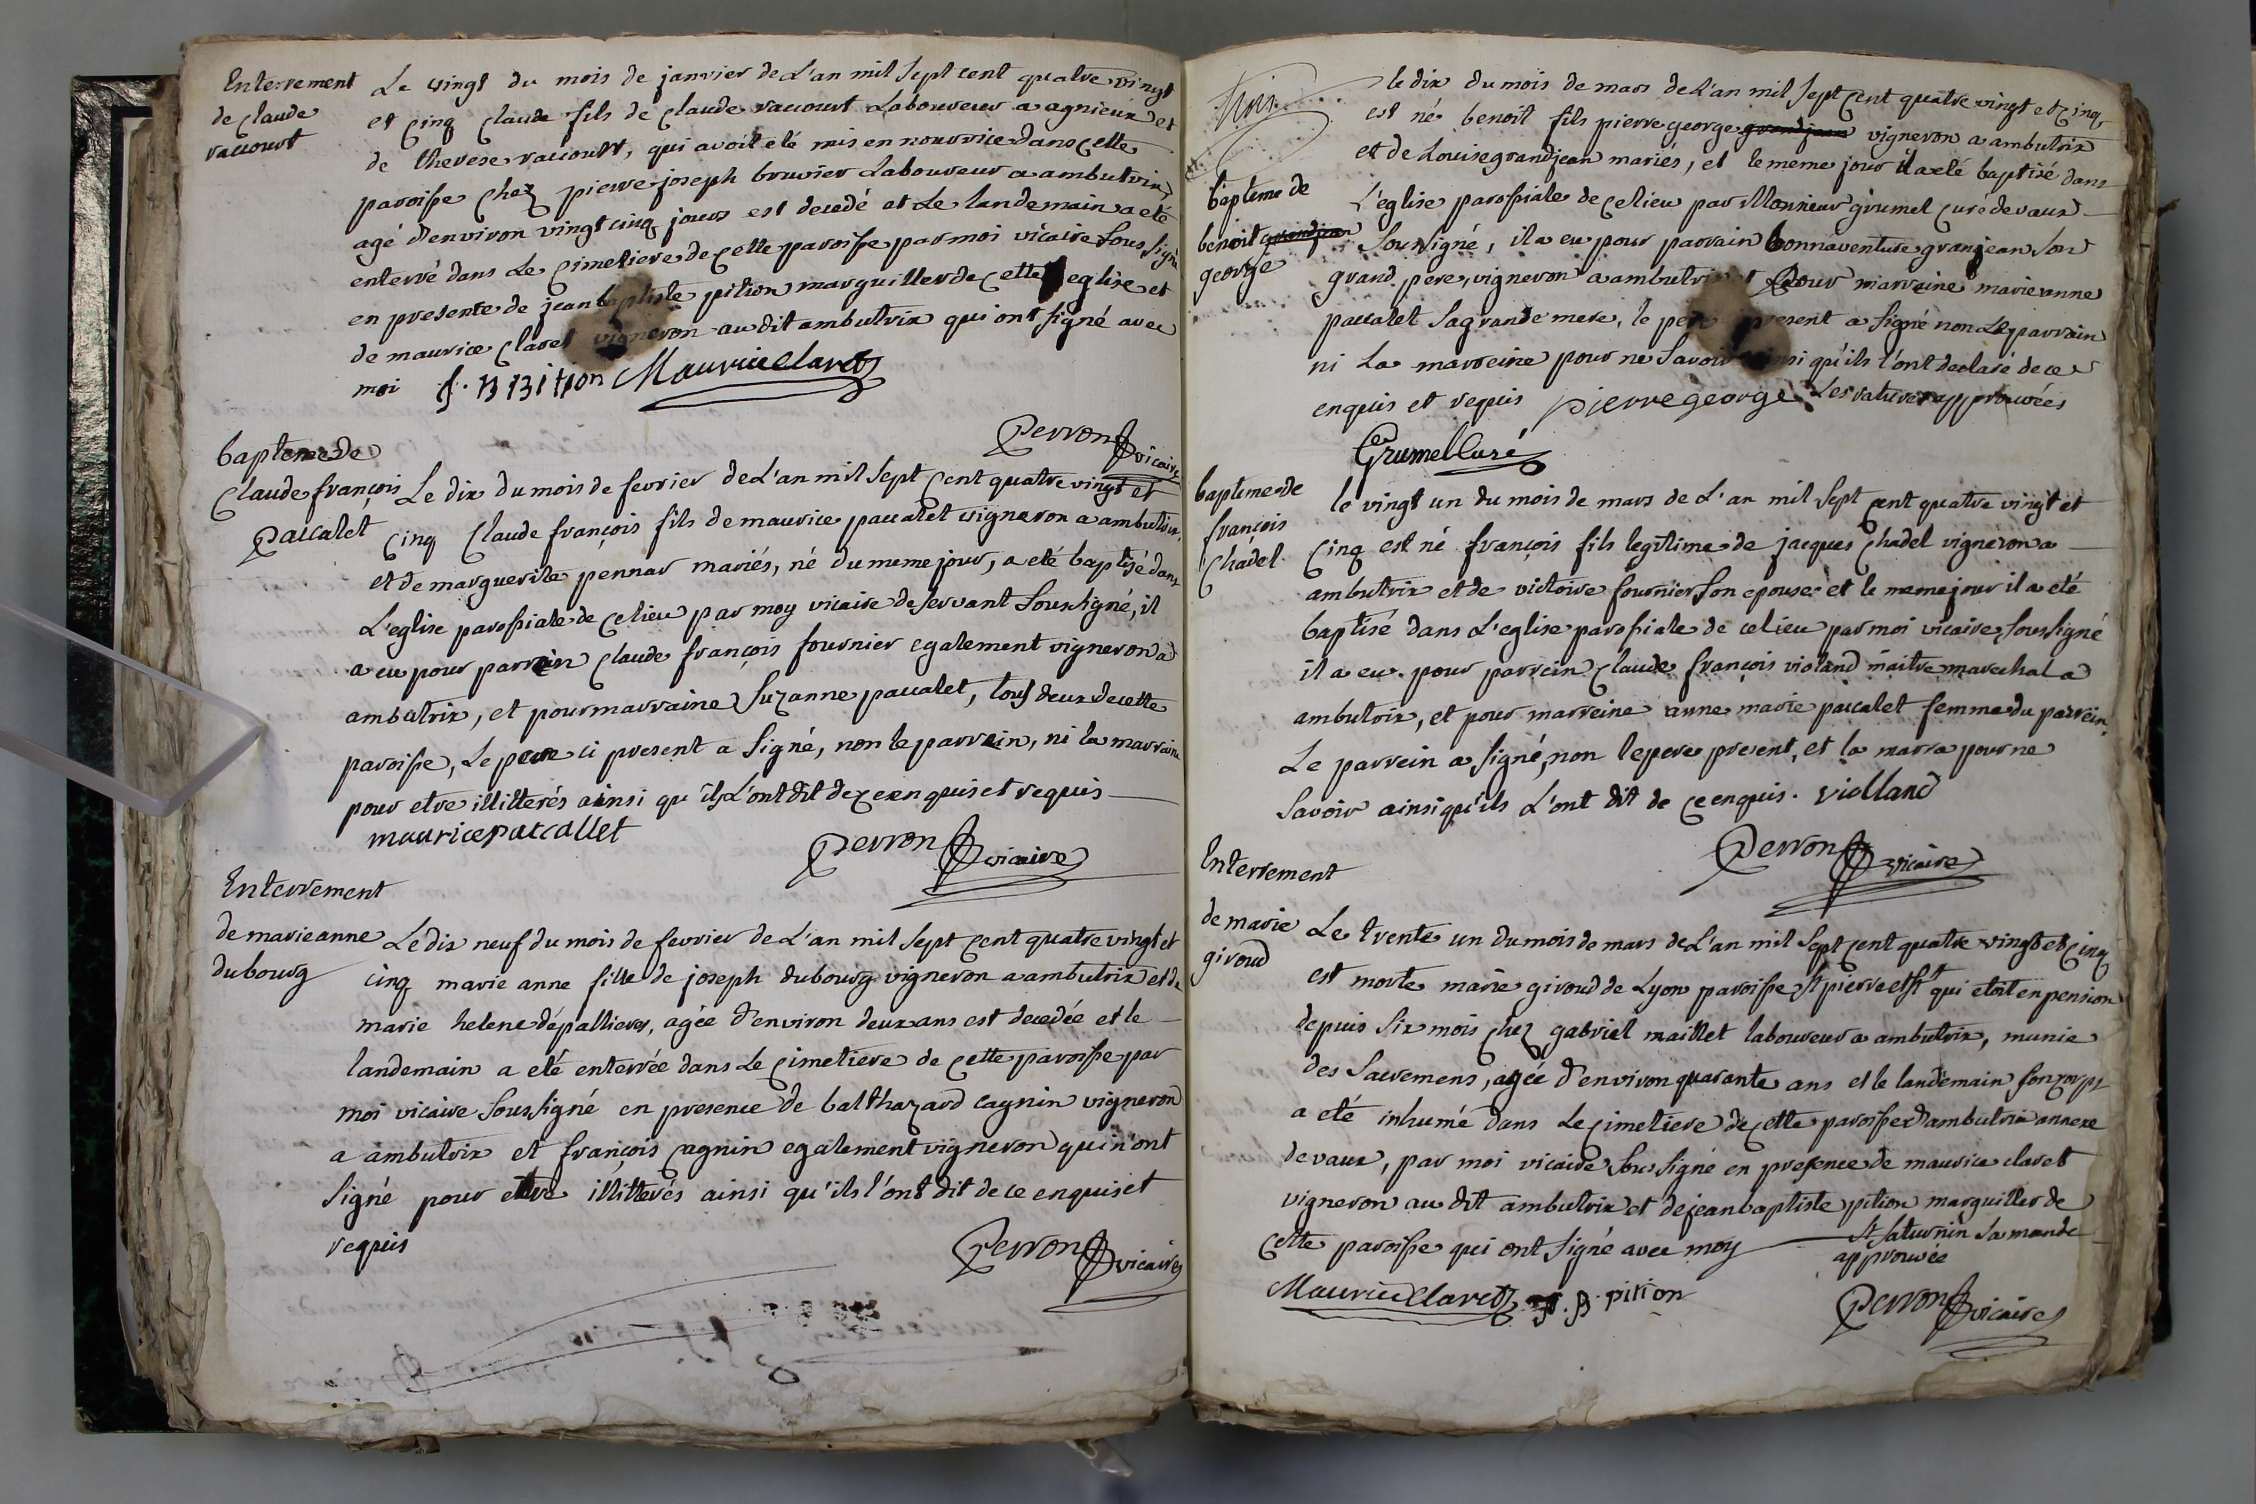 Enterrement
de claude
raccourt
Le vingt du mois de janvier de L'an mil sept cent quatre vingt
et cinq claude fils de claude raccourt Laboureur a agnieux et
de therese raccourt, qui avoit eté mis en nourrice dans cette
paroisse chez pierre joseph bruvier Laboureur a ambutrix,
agé d'environ vingt cinq jours est decedé et Le landemain a eté
enterré dans Le cimetiere de cette paroisse par moi vicaire soussigné
en presente de jean baptiste pition marguiller de cette eglise et
de maurice claret vigneron au dit ambutrix qui ont signé avec
moi J. B Pition Maurice Claret
Perron vicaire
bapteme de
Claude françois
paccalet
Le dix du mois de fevrier de L'an mil sept cent quatre vingt et
cinq Claude françois fils de maurice paccalet vigneron a ambutrix,
et de marguerite pennar mariés, né du meme jour, a eté baptisé dans
L'eglise parossiale de ce lieu par moy vicaire desservant soussigné, il
a eu pour parrein claude françois fournier egalement vigneron a
ambutrix, et pour marraine suzanne paccalet, tous deux de cette
paroisse, Le pere ci present a signé, non le parrein, ni la marraine
pour etre illitterés ainsi qu'ils L'ont dit de ce enquis et requis
maurice paccallet
Perron vicaire
Enterrement
de marie anne
dubourg
Le dix neuf du mois de fevrier de L'an mil sept cent quatre vingt et
cinq marie anne fille de joseph dubourg vigneron a ambutrix et de
marie helene dépallieres, agée d'environ deux ans est decedée et le
landemain a eté enterrée dans Le cimetiere de cette paroisse par
moi vicaire soussigné en presence de balthazard cagnin vigneron
a ambutrix et françois cagnin egalement vigneron qui n'ont
signé pour etre illitterés ainsi qu'ils l'ont dit de ce enquis et
requis
Perron vicaire
bapteme de
benoit grandjean
george
le dix du mois de mars de L'an mil sept cent quatre vingt et cinq
est né benoit fils pierre george grandjean vigneron a ambutrix
et de Louise grandjean mariés, et le meme jour il a eté baptisé dans
L'eglise parossiale de ce lieu par Monsieur grumel curé de vaux
soussigné, il a eu pour parrain bonnaventure granjean son
grand pere, vigneron a ambutrix et pour marraine marie anne
paccalet sa grande mere, le pere present a signé non Le parrain
ni La marreine pour ne savoir ainsi qu'ils l'ont declaré de ce
enquis et requis pierre george Les ratures approuvées
Grumel Curé
bapteme de
françois
Chadel
le vingt un du mois de mars de L'an mil sept cent quatre vingt et
cinq est né françois fils legitime de jacques chadel vigneron a
ambutrix et de victoire fournier son epouse et le meme jour il a eté
baptisé dans L'eglise parossiale de ce lieu par moi vicaire soussigné
il a eu pour parrein claude françois violand maitre marechal a
ambutrix, et pour marreine anne marie paccalet femme du parrein,
Le parrein a signé, non le pere present, et la marra pour ne
savoir ainsi qu'ils L'ont dit de ce enquis. violland
Perron vicaire
Enterrement
de marie
giroud
Le trente un du mois de mars de L'an mil sept cent quatre vingt et cinq
est morte marie giroud de Lyon paroisse st pierre et st qui etoit en pension
depuis six mois chez gabriel maillet laboureur a ambutrix, munie
des sacremens, agée d'environ quarante ans et le landemain son corps
a eté inhumé dans Le cimetiere de cette paroisse d'ambutrix annexe
de vaux, par moi vicaire soussigné en presence de maurice claret
vigneron au dit ambutrix et de jean baptiste pition marguiller de
cette paroisse qui ont signé avec moy
st saturnin sa mande
approuvée
Maurice Claret J. B. pition
Perron vicaire